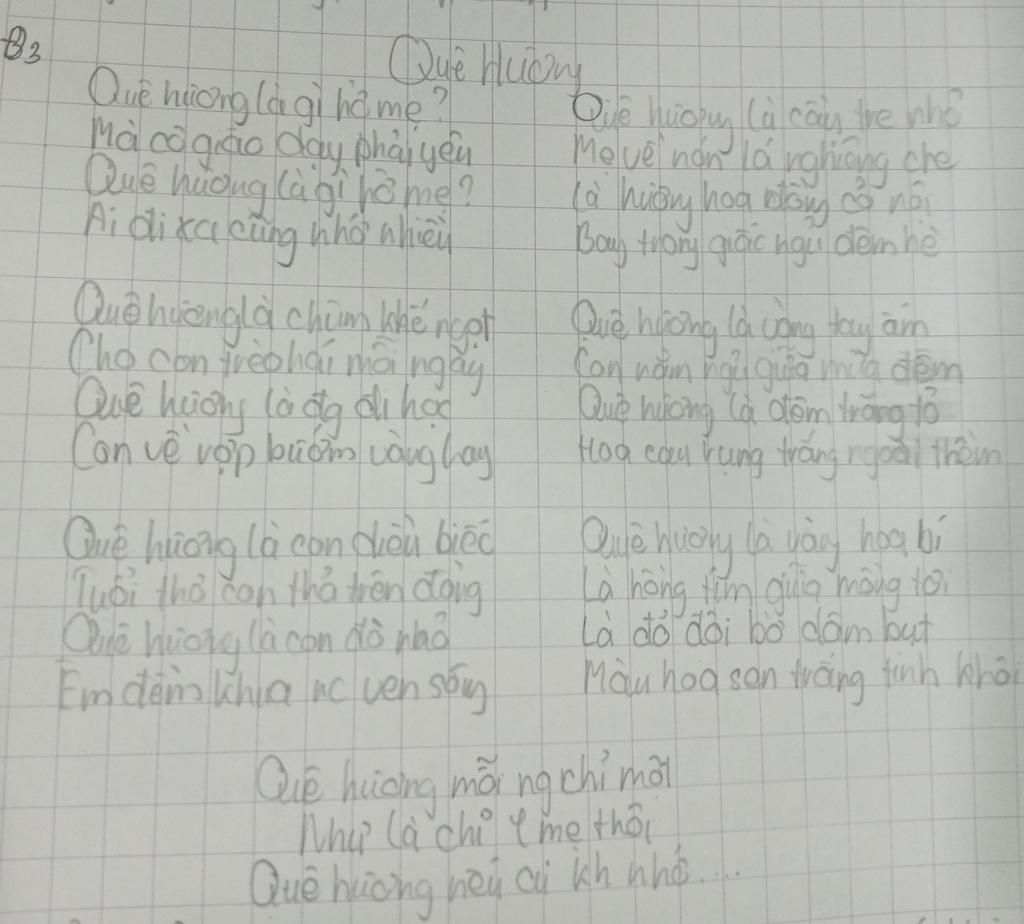 B3
Quê Hương
Quê hương là gì hở mẹ?
Mà cô giáo dạy phải yêu
Quê hương là gì hở mẹ?
Ai đi xa cũng nhớ nhiều
Quê hương là chùm khế ngọt
Cho con trèo hái mỗi ngày
Quê hương là đg đi học
Con về rợp bướm vàng bay
Quê hương là con diều biếc
Tuổi thơ con thả trên đồng
Quê hương là con đò nhỏ
Êm đềm khua nc ven sông
Quê hương là cầu tre nhỏ
Mẹ về nón lá nghiêng che
Là hương hoa đồng cỏ nội
Bay trong giấc ngủ đêm hè
Quê hương là vòng tay ấm
Con nằm ngủ giữa mưa đêm
Quê hương là đêm trăng tỏ
Hoa cau rụng trắng ngoài thềm
Quê hương là vàng hoa bí
Là hồng tím giậu mồng tơi
Là đỏ đôi bờ dâm bụt
Màu hoa sen trắng tinh khôi
Quê hương mỗi ng chỉ một
Như là chỉ 1 mẹ thôi
Quê hương nếu ai kh nhớ....